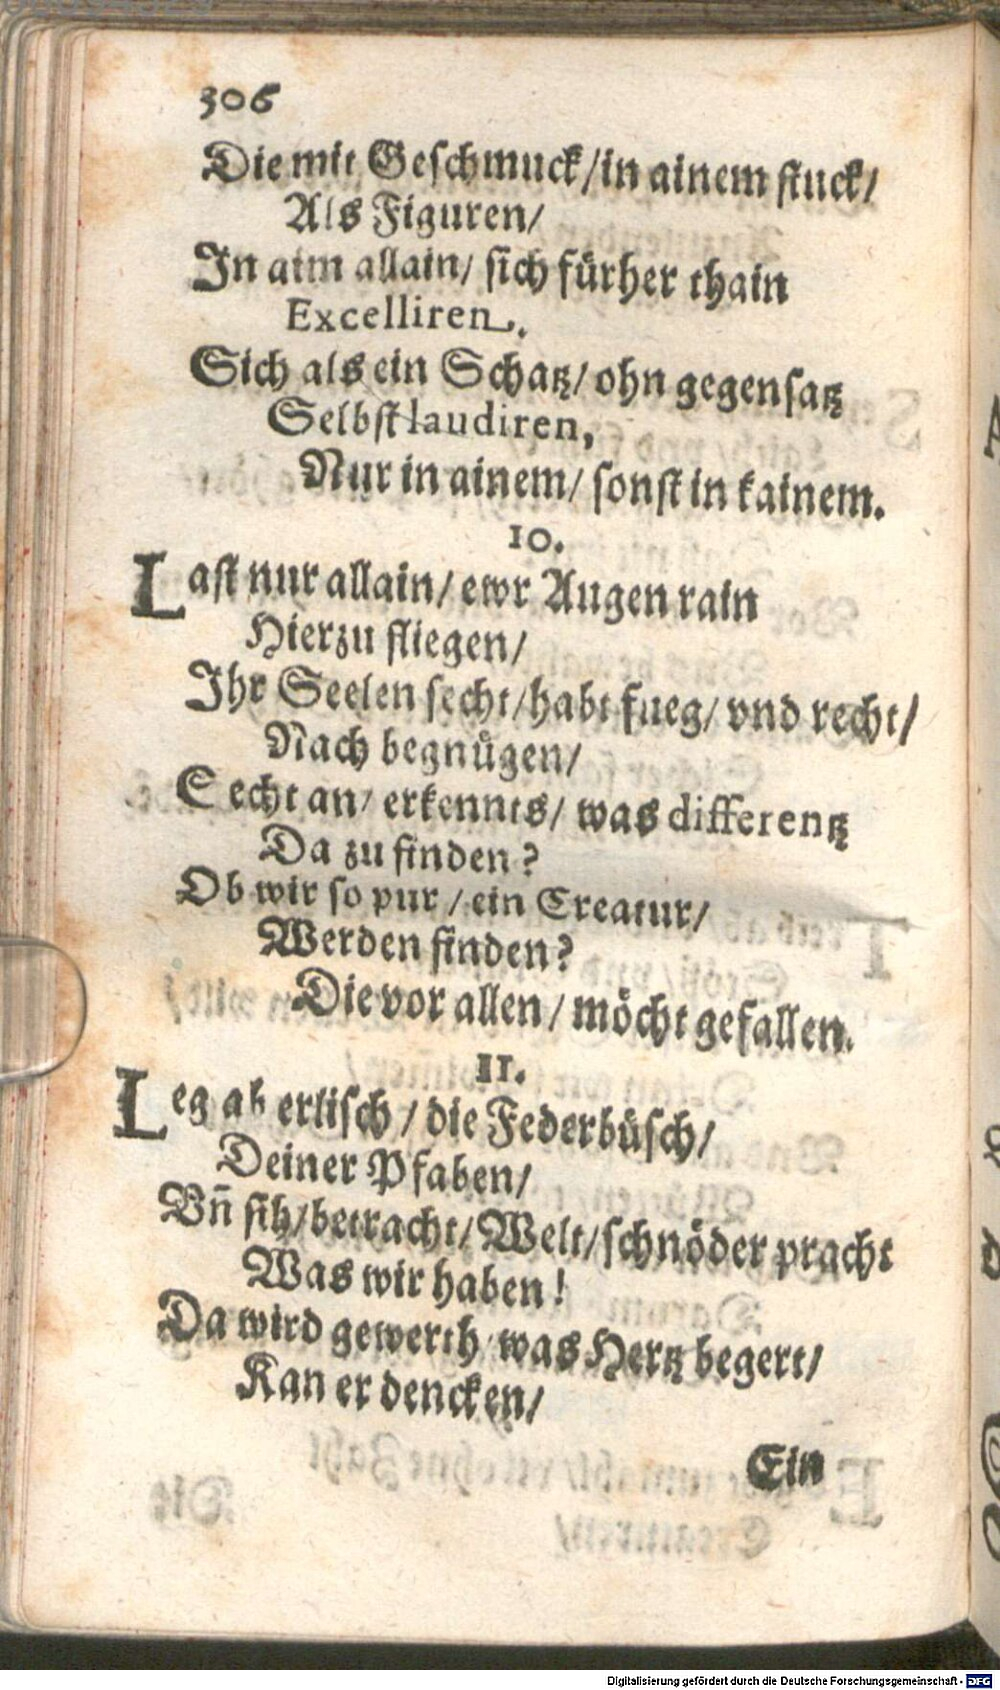 306
Die mit Geschmuck/in ainem stuck/
Als Figuren/
In aim allain/ sich fürher thain
Excelliren.
Sich als ein Schatz/ ohn gegensatz
Selbst laudiren,
Nur in ainem/ sonst in kainem.
10.
Last nur allain/ ewr Augen rain
Hierzu fliegen/
Ihr Seelen secht/habt fueg/ vnd recht/
Nach begnügen/
Secht an/ erkennts/ was differentz
Da zu finden?
Ob wir so pur / ein Creatur/
Werden finden?
Die vor allen / möcht gefallen.
11.
Leg ab erlisch / die Federbüsch/
Deiner Pfaben/
Vñ sih/betracht/Welt/schnöder pracht
Was wir haben!
Da wird gewerth was Hertz begert/
Kan er dencken/
Ein
Digitalisierung gefördert durch die Deutsche Forschungsgemeinschaft - DFG